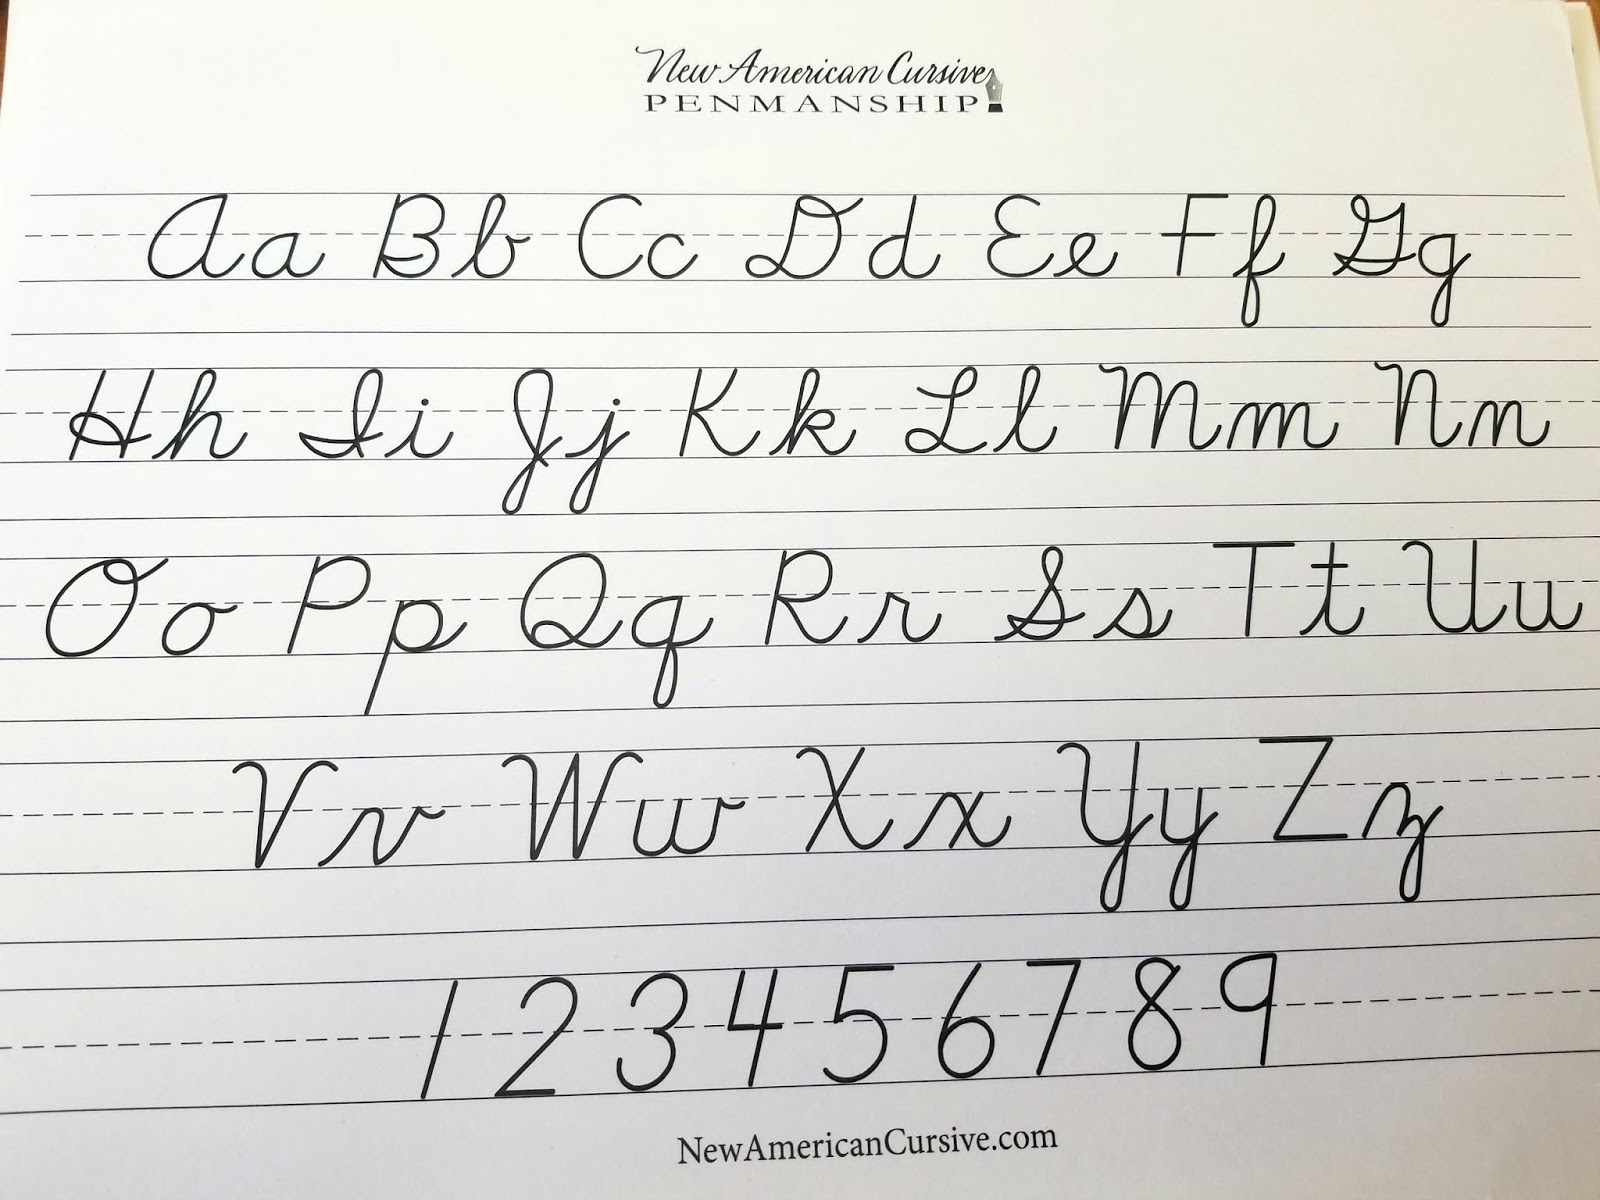 New American Cursive
PENMANSHIP
Aa Bb Cc Dd Ee Ff Gg
Hh Ii Jj Kk Ll Mm Nn
Oo Pp Qq Rr Ss Tt Uu
Vv Ww Xx Yy Zz
1 2 3 4 5 6 7 8 9
NewAmericanCursive.com